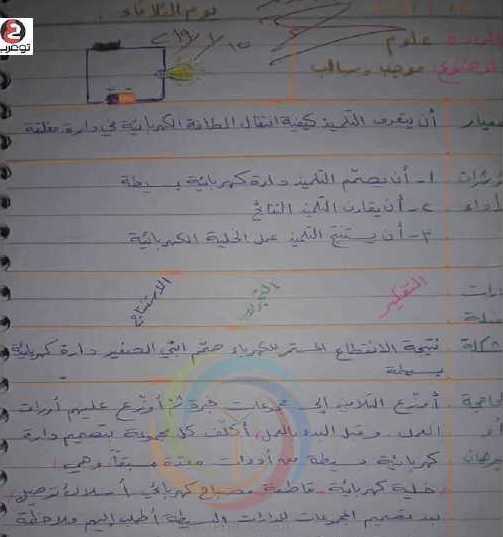 يوم الثلاثاء
٢٠١٩/١/١٥
علوم
موجب وسالب
أن يتعرف التلميذ كيفية انتقال الطاقة الكهربائية في دارة مغلقة
١- أن يصمّم التلميذ دارة كهربائية بسيطة
الأداء ٢- أن يقارن التلميذ النتائج
٣- أن يستنتج التلميذ عمل الخلية الكهربائية
التفكير التجريب الاستنتاج
نتيجة الانقطاع المستمر للكهرباء صمّم ابني الصغير دارة كهربائية
بسيطة
أوزّع التلاميذ إلى مجموعات خبرة ثمّ أوزّع عليهم أوراق
العمل. وقبل البدء بالعمل أكلّف كل مجموعة بتصميم دارة
كهربائية بسيطة من أدوات معدة مسبقاً وهي:
خلية كهربائية. قاطعة. مصباح كهربائي. أسلاك توصيل.
بعد تصميم المجموعات للدارات البسيطة أطلب إليهم ملاحظة